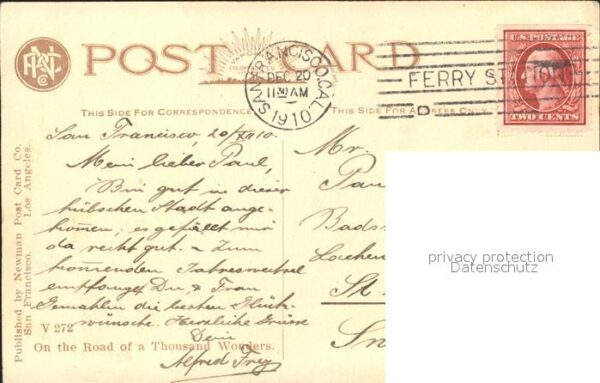 POST CARD
SAN FRANCISCO, CAL.
DEC 20
11 30 AM
1910
FERRY STATION
U.S. POSTAGE
TWO CENTS
THIS SIDE FOR CORRESPONDENCE
THIS SIDE FOR ADDRESS ONLY
Published by Newman Post Card Co.
San Francisco. Los Angeles.
San Francisco 20/XII 10.
Mein lieber Paul,
Bin gut in dieser
hübschen Stadt ange-
kommen; es gefällt mir
da recht gut. – Zum
kommenden Jahreswechsel
empfange Du & Frau
Gemahlin die besten Glück-
wünsche. Herzliche Grüsse
Dein
Alfred Frey
V 272
On the Road of a Thousand Wonders.
Mr.
Pau
Bads
St.
privacy protection
Datenschutz